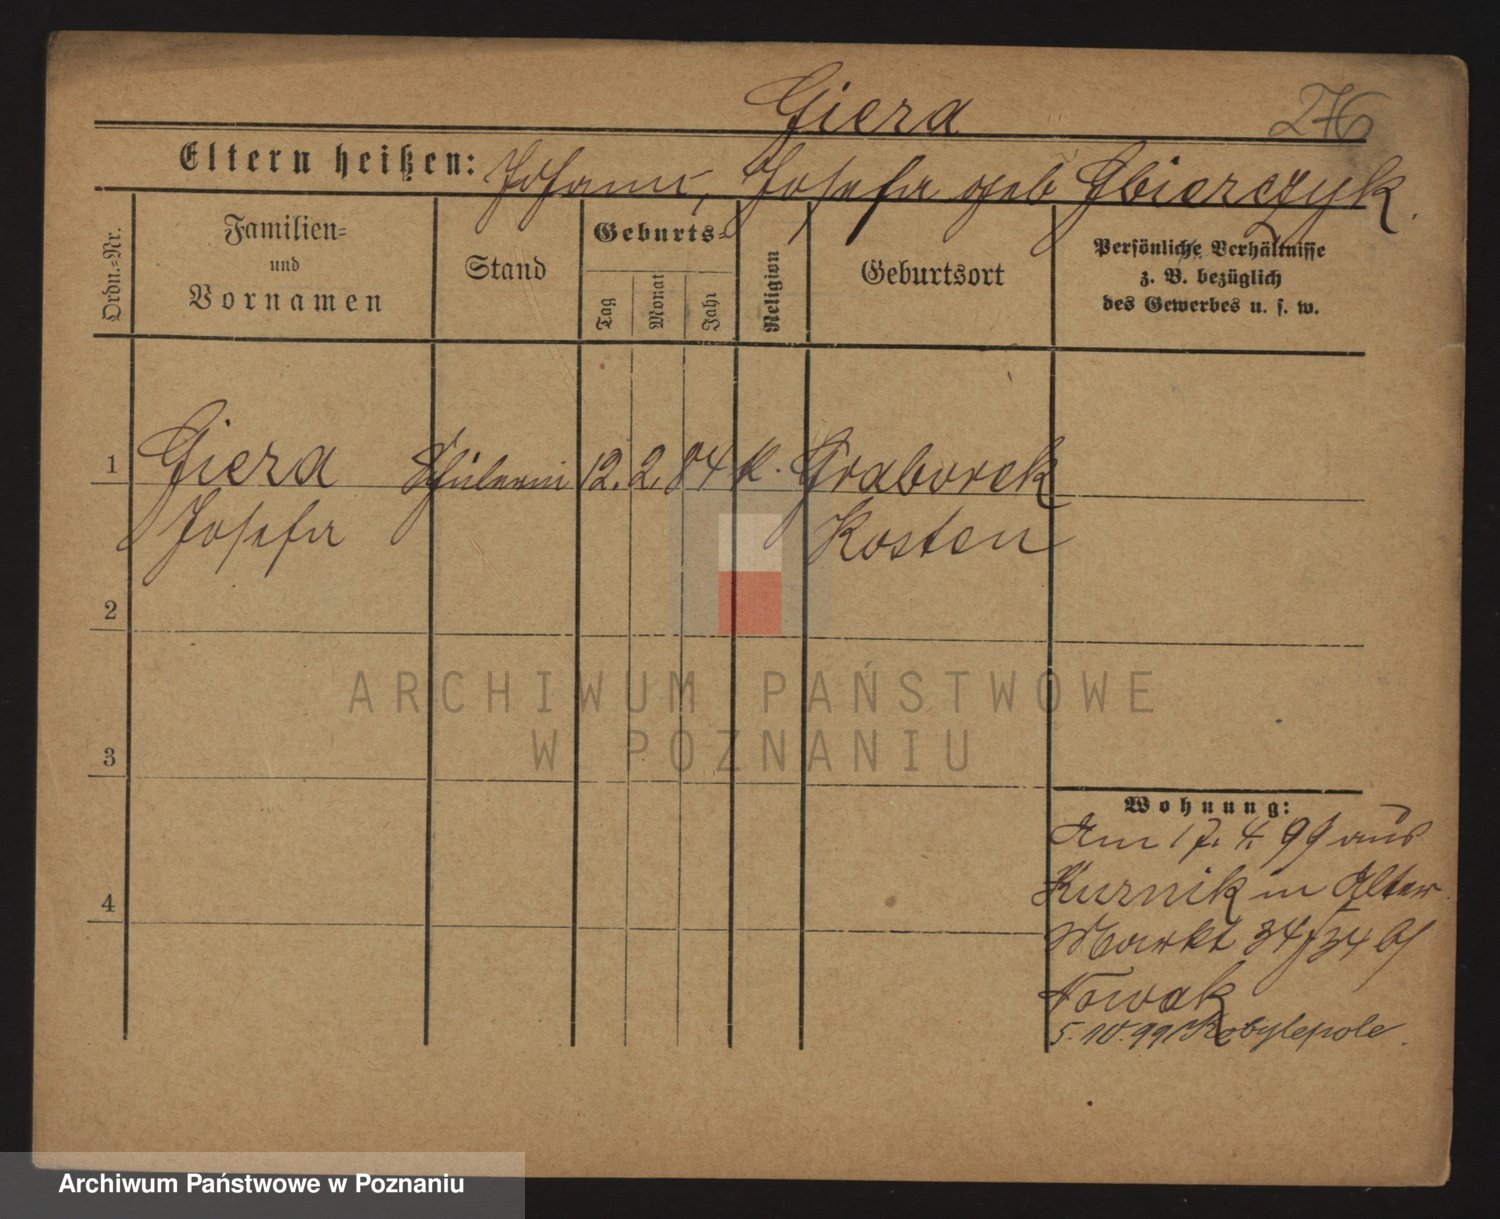 Giera
276
Eltern heißen: Johann, Josefa geb Gbierczyk.
Ordn.-Nr.
Familien-
und
Vornamen
Stand
Geburts-
Tag
Monat
Jahr
Religion
Geburtsort
Persönliche Verhältnisse
z. B. bezüglich
des Gewerbes u. s. w.
1 Giera Schülerin 12. 2. 84 k. Graborek
Josefa Kosten
2
ARCHIWUM PAŃSTWOWE
W POZNANIU
3
Wohnung:
Am 17. 4. 99 aus
Kurnik in Alter
4
Markt 34
Nowak
5. 10. 99 Kobylepole.
Archiwum Państwowe w Poznaniu